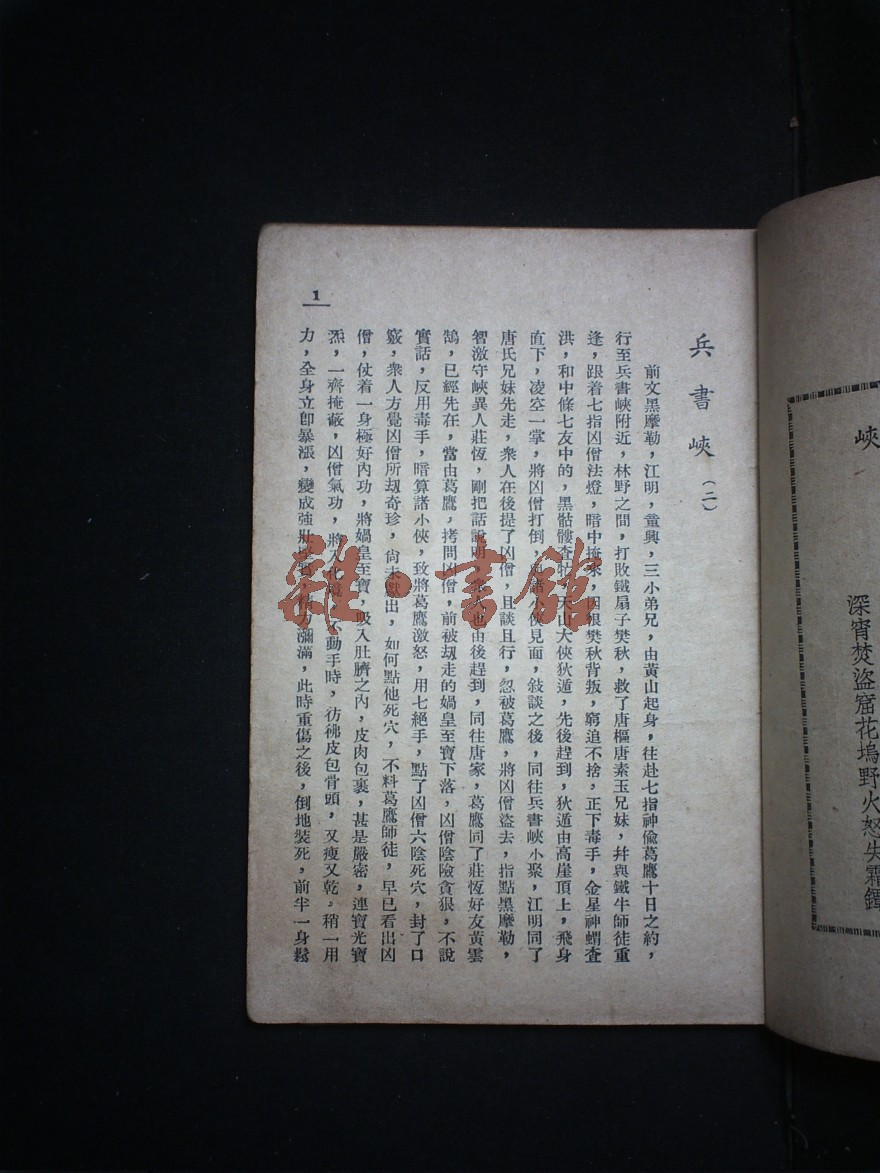 峽
深宵焚盜窟花塢野火怒失霜鐔
兵書峽(二)
前文黑摩勒，江明，童興，三小弟兄，由黃山起身，往赴七指神偷葛鷹十日之約，
行至兵書峽附近，林野之間，打敗鐵扇子樊秋，救了唐樞唐素玉兄妹，幷與鐵牛師徒重
逢，跟着七指凶僧法燈，暗中掩來，因恨樊秋背叛，窮追不捨，正下毒手，金星神蝟查
洪，和中條七友中的，黑骷髏查牤，天山大俠狄遁，先後趕到，狄遁由高崖頂上，飛身
直下，凌空一掌，將凶僧打倒，諸小俠見面，敍談之後，同往兵書峽小聚，江明同了
唐氏兄妹先走，衆人在後提了凶僧，且談且行，忽被葛鷹，將凶僧盜去，指點黑摩勒，
智激守峽異人莊恆，剛把話說明，衆人也由後趕到，同往唐家，葛鷹同了莊恆好友黃雲
鵠，已經先在，當由葛鷹，拷問凶僧，前被刧走的媧皇至寶下落，凶僧陰險貪狠，不說
實話，反用毒手，暗算諸小俠，致將葛鷹激怒，用七絕手，點了凶僧六陰死穴，封了口
竅，衆人方覺凶僧所刧奇珍，尙未獻出，如何點他死穴，不料葛鷹師徒，早已看出凶
僧，仗着一身極好內功，將媧皇至寶，吸入肚臍之內，皮肉包裹，甚是嚴密，連寶光寶
炁，一齊掩蔽，凶僧氣功，將入化境，不動手時，彷彿皮包骨頭，又瘦又乾，稍一用
力，全身立卽暴漲，變成強壯，精力瀰滿，此時重傷之後，倒地裝死，前半一身鬆
1
雜·書館